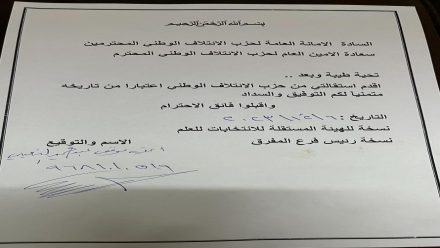 بسم الله الرحمن الرحيم
السادة الامانة العامة لحزب الائتلاف الوطني المحترمين
سعادة الامين العام لحزب الائتلاف الوطني المحترم
تحية طيبة وبعد ..
اقدم استقالتي من حزب الائتلاف الوطني اعتبارا من تاريخه
متمنيا لكم التوفيق والسداد
واقبلوا فائق الاحترام
التاريخ :
نسخة للهيئة المستقلة للانتخابات للعلم
نسخة رئيس فرع المفرق
الاسم والتوقيع